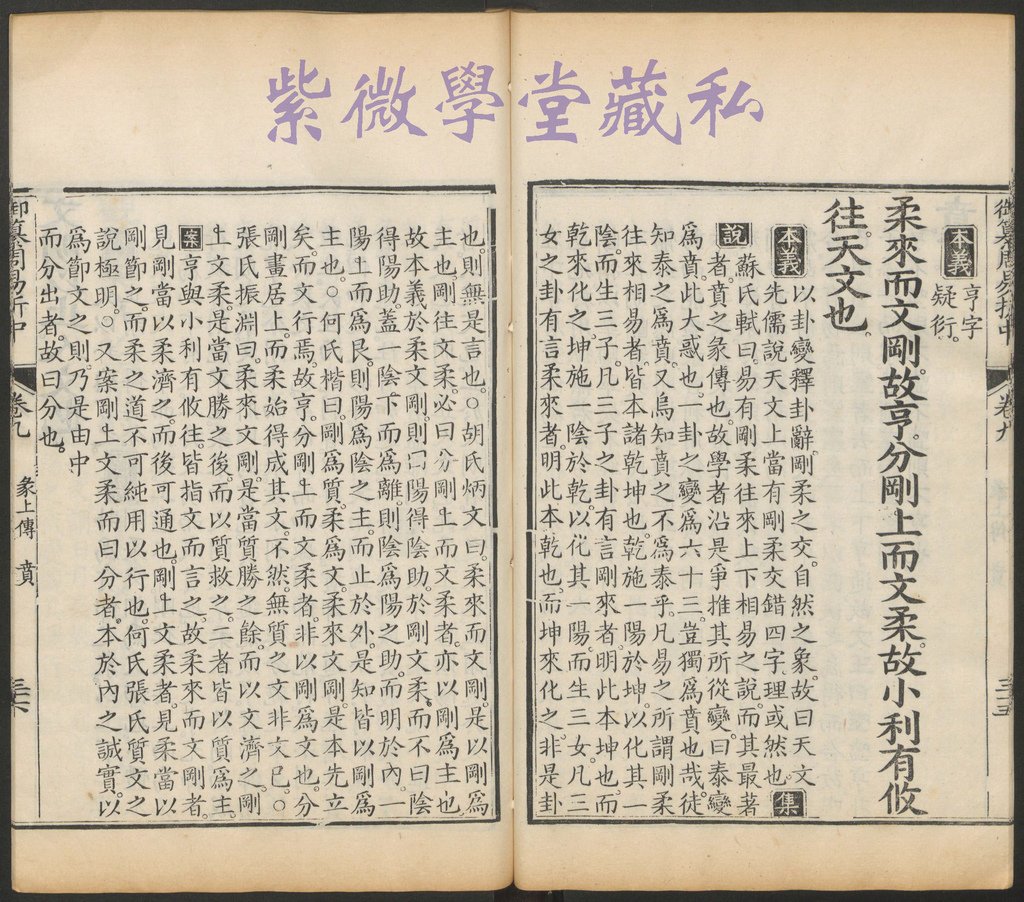 紫微學堂藏私
御纂周易折中 卷九 三五
本義 亨字疑衍。
柔來而文剛。故亨。分剛上而文柔。故小利有攸
往。天文也。
本義 以卦變釋卦辭。剛柔之交。自然之象。故曰天文。
先儒說天文上當有剛柔交錯四字。理或然也。集
說 蘇氏軾曰。易有剛柔往來上下相易之說。而其最著
者。賁之彖傳也。故學者沿是爭推其所從變。曰泰變
爲賁。此大惑也。一卦之變爲六十三。豈獨爲賁也哉。徒
知泰之爲賁。又烏知賁之不爲泰乎。凡易之所謂剛柔
往來相易者。皆本諸乾坤也。乾施一陽於坤。以化其一
陰而生三子。凡三子之卦有言剛來者。明此本坤也。而
乾來化之。坤施一陰於乾。以化其一陽而生三女。凡三
女之卦有言柔來者。明此本乾也。而坤來化之。非是卦
也。則無是言也。○胡氏炳文曰。柔來而文剛。是以剛爲
主也。剛往文柔。必曰分剛上而文柔者。亦以剛爲主也。
故本義於柔文剛。則曰陽得陰助。於剛文柔。而不曰陰
得陽助。蓋一陰下而爲離。則陰爲陽之助。而明於內。一
陽上而爲艮。則陽爲陰之主。而止於外。是知皆以剛爲
主也。○何氏楷曰。剛爲質。柔爲文。柔來文剛。是本先立
矣。而文行焉。故亨。分剛上而文柔者。非以剛爲文也。分
剛畫居上。而柔始得成其文。不然。無質之文。非文已。○
張氏振淵曰。柔來文剛。是當質勝之餘。而以文濟之。剛
上文柔。是當文勝之後。而以質救之。二者皆以質爲主。
案 亨與小利有攸往。皆指文而言之。故柔來而文剛者。
見剛當以柔濟之。而後可通也。剛上文柔者。見柔當以
剛節之。而柔之道不可純用以行也。何氏張氏質文之
說極明。○又案剛上文柔而曰分者。本於內之誠實。以
爲節文之則。乃是由中
而分出者。故曰分也。
御纂周易折中 卷九 彖上傳 賁 三六